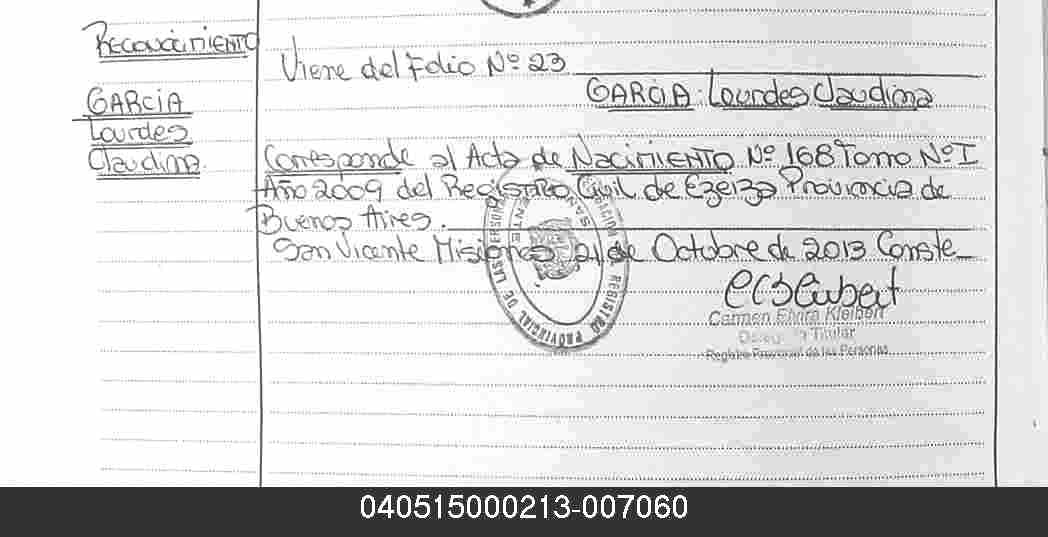 RECONOCIMIENTO
GARCIA
Lourdes
Claudina.
Viene del Folio Nº 23
GARCIA: Lourdes Claudina
Corresponde al Acta de NACIMIENTO Nº 168 Tomo Nº I
Año 2009 del Registro Civil de Ezeiza Provincia de
Buenos Aires.
San Vicente Misiones, 21 de Octubre de 2013 Conste
REGISTRO PROVINCIAL DE LAS PERSONAS
SAN VICENTE
MISIONES
Carmen Elvira Kleibert
Delegada Titular
Registro Provincial de las Personas
040515000213-007060